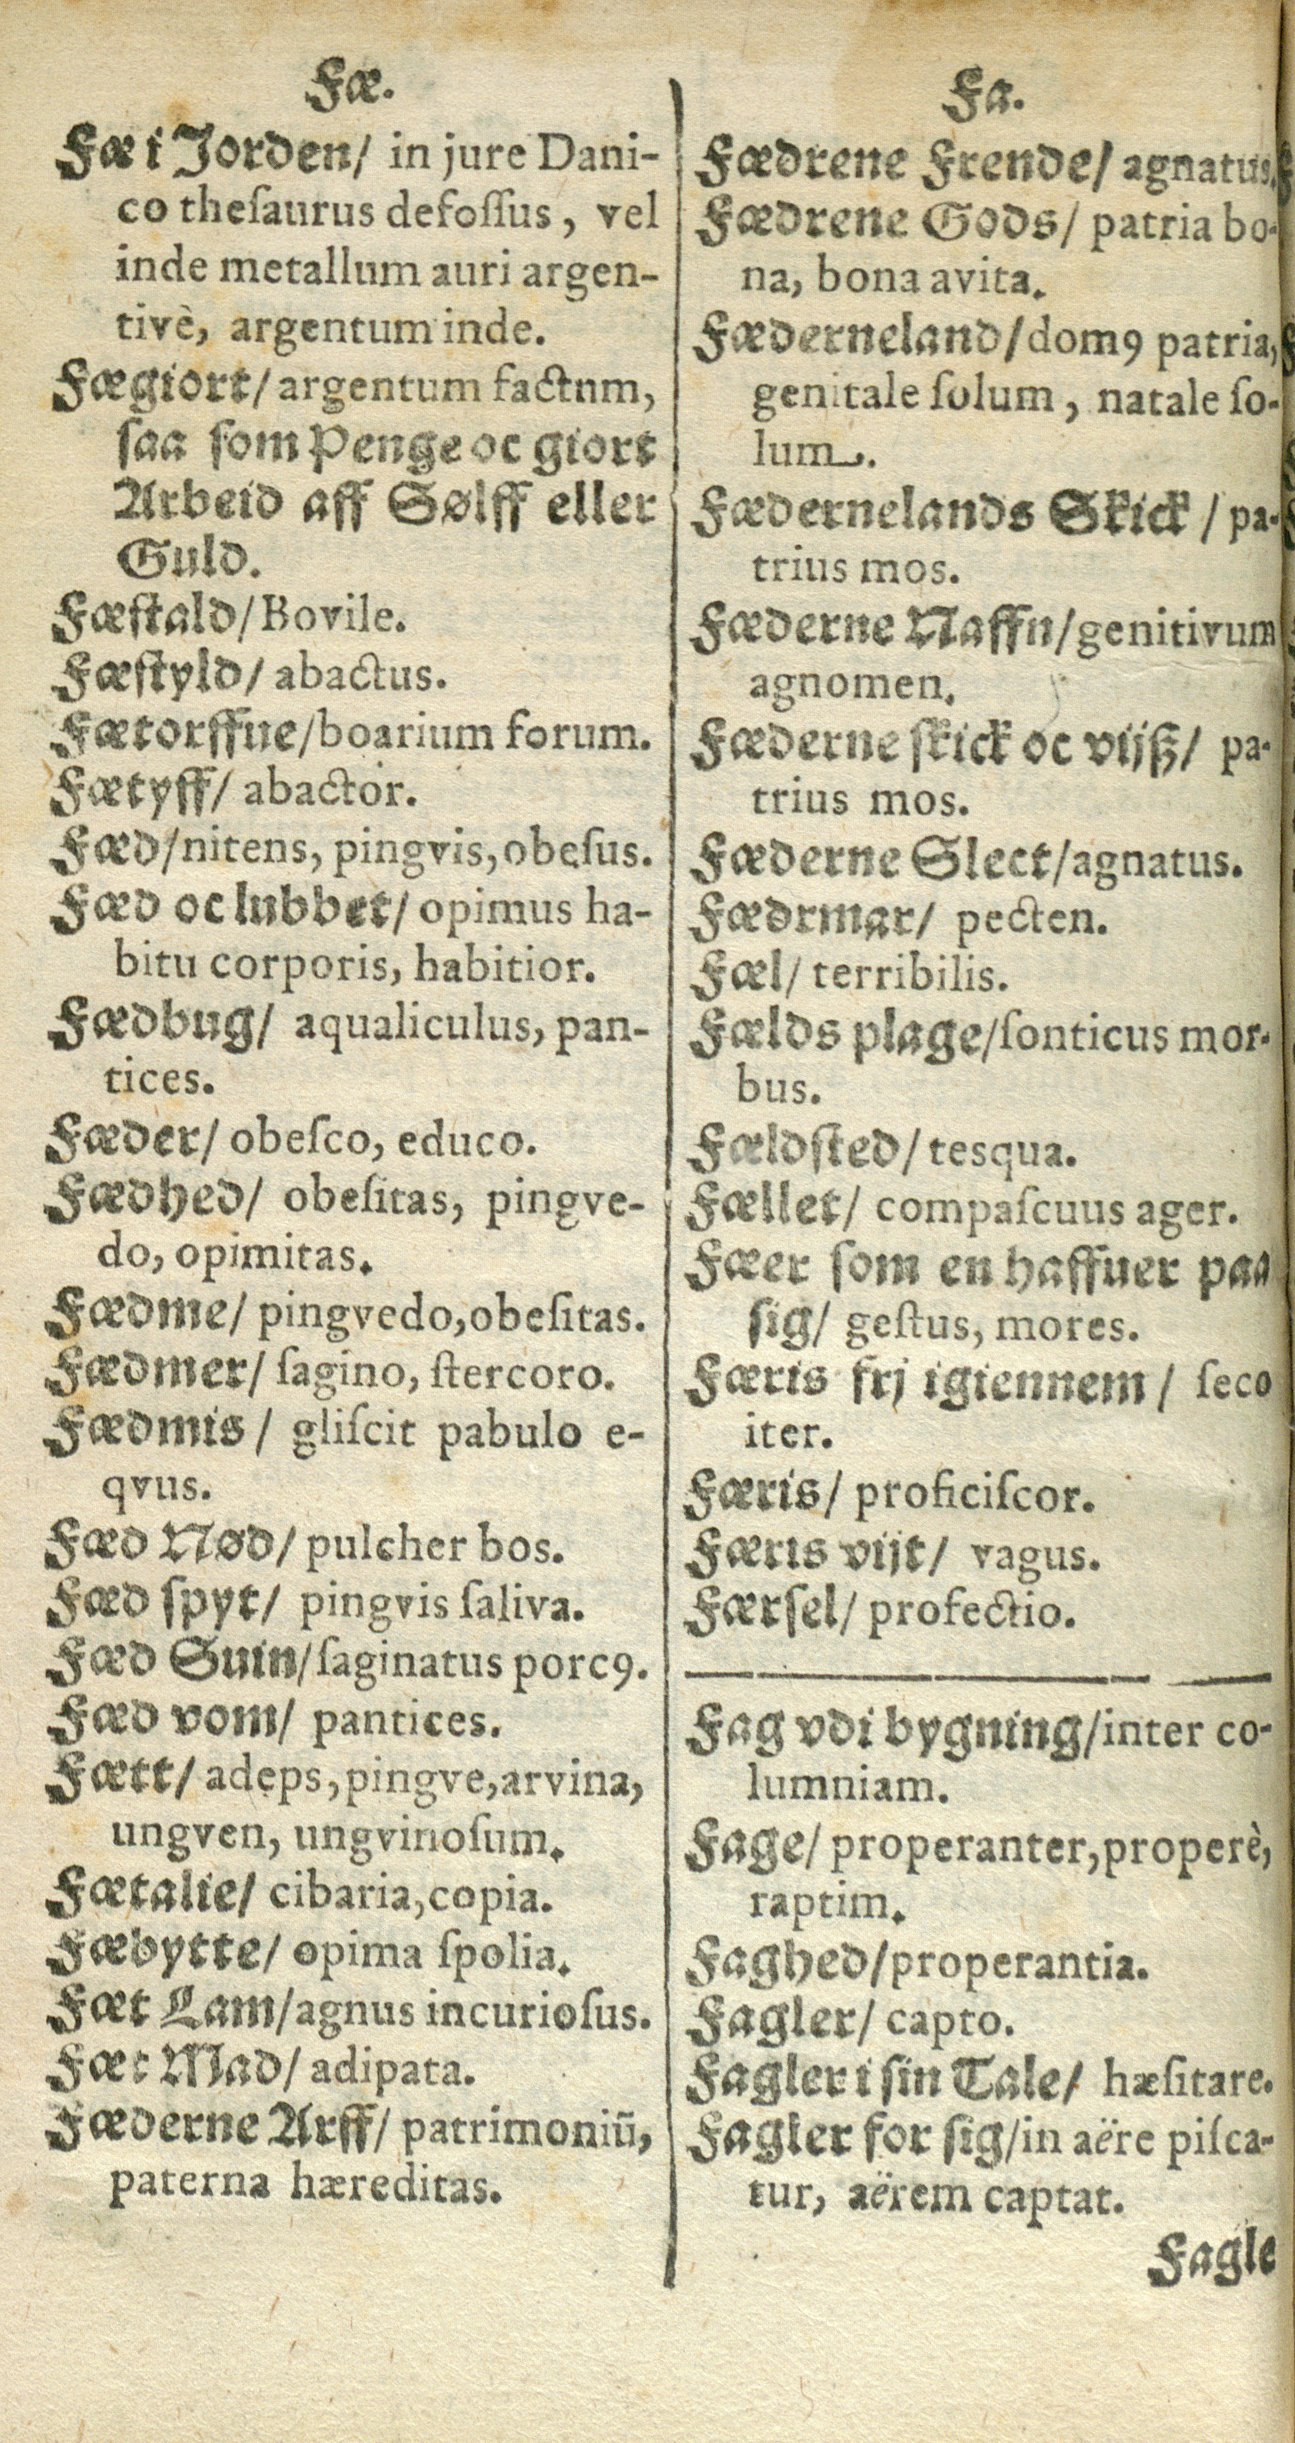 Fæ.
Fæ i Jorden/ in jure Dani-
co theſaurus defoſſus, vel
inde metallum auri argen-
tivè, argentum inde.
Fægiort/ argentum factnm,
ſaa ſom Penge oc giort
Arbeid aff Sølff eller
Guld.
Fæſtald/ Bovile.
Fæſtyld/ abactus.
Fætorffue/boarium forum.
Fætyff/ abactor.
Fæd/nitens, pingvis, obeſus.
Fæd oc lubbet/ opimus ha-
bitu corporis, habitior.
Fædbug/ aqualiculus, pan-
tices.
Fæder/ obeſco, educo.
Fædhed/ obeſitas, pingve-
do, opimitas.
Fædme/ pingvedo, obeſitas.
Fædmer/ ſagino, ſtercoro.
Fædmis/ gliſcit pabulo e-
qvus.
Fæd Nød/ pulcher bos.
Fæd ſpyt/ pingvis ſaliva.
Fæd Suin/ſaginatus porcꝰ.
Fæd vom/ pantices.
Fætt/ adeps, pingve, arvina,
ungven, ungvinoſum.
Fætalie/ cibaria, copia.
Fæbytte/ opima ſpolia.
Fæt Lam/agnus incurioſus.
Fæt Mad/ adipata.
Fæderne Arff/ patrimoniū,
paterna hæreditas.
Fa.
Fædrene Frende/ agnatus.
Fædrene Gods/ patria bo-
na, bona avita.
Fæderneland/domꝰ patria,
genitale ſolum, natale ſo-
lum.
Fædernelands Skick/ pa-
trius mos.
Fæderne Naffn/genitivum
agnomen.
Fæderne ſkick oc vijß/ pa-
trius mos.
Fæderne Slect/agnatus.
Fædrmar/ pecten.
Fæl/ terribilis.
Fælds plage/ſonticus mor-
bus.
Fældſted/ tesqua.
Fællet/ compaſcuus ager.
Fæer ſom en haffuer paa
ſig/ geſtus, mores.
Færis frj igiennem/ ſeco
iter.
Færis/ proficiſcor.
Færis vijt/ vagus.
Færſel/ profectio.
Fag vdi bygning/inter co-
lumniam.
Fage/ properanter, properè,
raptim.
Faghed/properantia.
Fagler/ capto.
Fagler i ſin Tale/ hæſitare.
Fagler for ſig/in aëre piſca-
tur, aërem captat.
Fagle